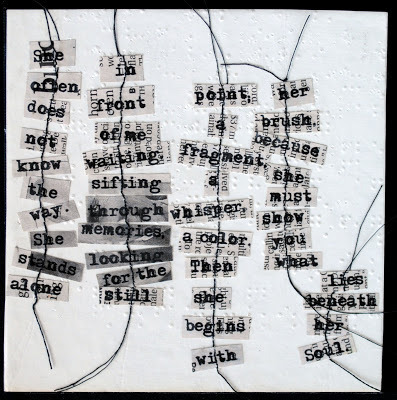 She
often
does
not
know
the
way.
She
stands
alone
in
front
of me
waiting
sifting
through
memories,
looking
for the
still
point,
a
fragment
a
whisper
a color.
Then
she
begins
with
her
brush,
because
she
must
show
you
what
lies
beneath
her
Soul